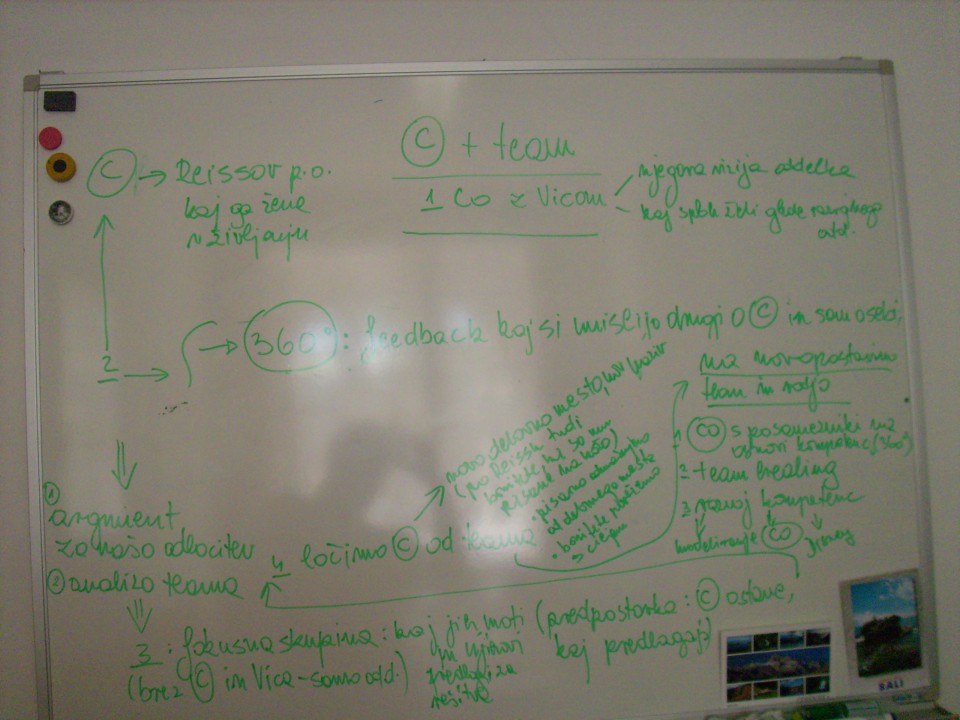 C + team
1 Co z Vicom
njegova vizija oddelka
kaj sploh želi glede razvojnega
odd.
C → Reissov p.o.
kaj ga žene
v življenju
2 →
→ 360° : feedback kaj si mislijo drugi o C in sam o sebi,
① argument
za našo odločitev
② analizo teama
3 : fokusna skupina : kaj jih moti (predpostavka : C ostane,
in njihovi kaj predlagajo)
(brez C in Vica - samo odd.) predlogi za
rešitve
4 ločimo C od teama
novo delovno mesto,
(po Reissu tudi
bonitete
pisane na kožo)
• pisano
od delovnega mesta
• bonitete
s ciljem
na novopostavimo
team in vodjo
1 CO s posamezniki na
osnovi kompetenc (360°)
2 team building
3 razvoj kompetenc
modeliranje CO
BALI